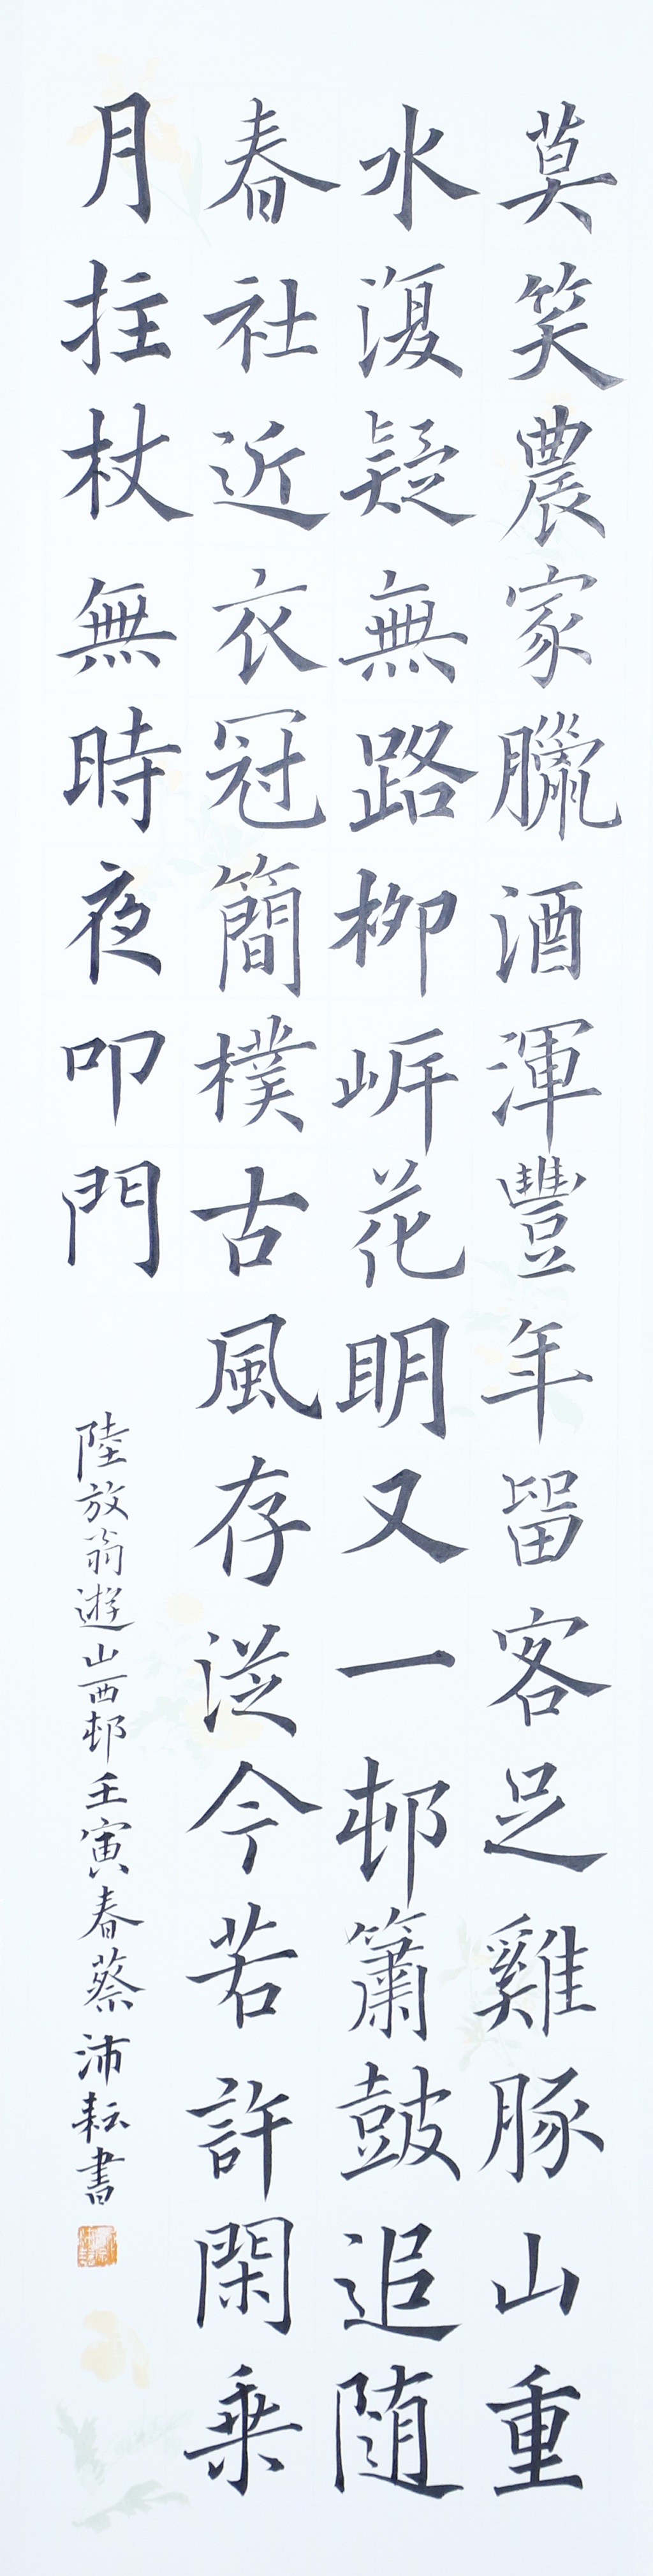 莫笑農家臘酒渾豐年留客足雞豚山重
水復疑無路柳岍花明又一邨簫鼓追隨
春社近衣冠簡樸古風存從今若許閑乘
月拄杖無時夜叩門
陸放翁遊山西邨壬寅春蔡沛耘書